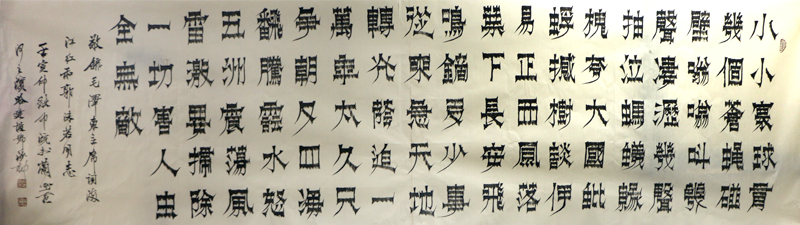 小小寰球有
幾個蒼蠅碰
壁嗡嗡叫幾
聲凄厲幾聲
抽泣螞蟻緣
槐夸大國蚍
蜉撼樹談何
易正西風落
葉下長安飛
鳴鏑多少事
從來急天地
轉光陰迫一
萬年太久只
爭朝夕四海
翻騰雲水怒
五洲震蕩風
雷激要掃除
一切害人虫
全無敵
敬錄毛澤東主席詞滿
江紅和郭沫若同志
壬寅仲秋